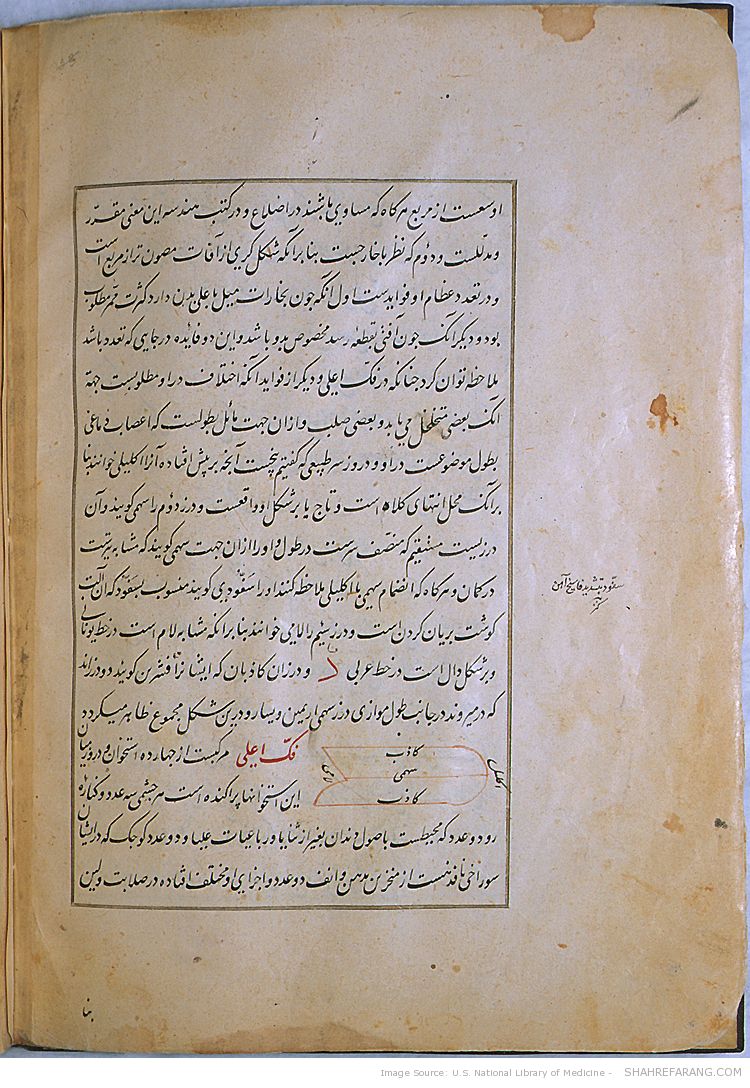 اوسعست از مربع هرگاه که مساوی باشند در اضلاع و در کتب هندسه این معنی مقرر
و مدللست و دوم که نظر با خارجست بنا برانکه شکل کری از آفات مصون تر از مربع است
و در تعدد عظام او فوایدست اول انکه چون بخارات میل باعلی بدن دارد کثرت ممر مطلوب
بود و دیگر آنک چون آفتی بقطعه رسد مخصوص بدو باشد و این دو فایده در جایی که تعدد باشد
ملاحظه توان کرد چنانکه در فک اعلی و دیگر از فواید انکه اختلاف در او مطلوبست جهة
آنک بعضی متخلخل می باید و بعضی صلب و از ان جهت مائل بطولست که اعصاب دماغی
بطول موضوعست در او و دروز سر طبیعی که گفتیم پنجست آنچه بر پیش افتاده آنرا اکلیلی خوانند بنا
برآنک محل انتهای کلاه است و تاج یا بر شکل او واقعست و درز دوم را سهمی گویند و آن
درزیست مستقیم که منصف سرست در طول و او را از ان جهت سهمی گویند که مشابه تیرست
در کمان و هرگاه که انضمام سهمی با اکلیلی ملاحظه کنند او را سفودی گویند منسوب بسفود که آن آلت
گوشت بریان کردن است و درز سیم را لامی خوانند بنا برانکه مشابه لام است در خط یونانی
و بر شکل دال است در خط عربی د و درزان کاذبان که ایشانرا قشرین گویند دو درزاند
که در میروند در جانب طول موازی درز سهمی از یمین و یسار و درین شکل مجموع ظاهر میگردد
کاذب
سهمی
کاذب
اکلیلی
لامی
فک اعلی مرکبست از چهارده استخوان و دروز میان
این استخوانها پراکنده است هر چشمی سه عدد و کناره
رو دو عدد که محیطست باصول دندان بغیر از ثنایا و رباعیات علیا و دو عدد کوچک که در ایشان
سوراخی نافذست از منخرین بدهن و انف دو عدد و اجزای او مختلف افتاده در صلابت و لین
سفود بتشدید فا سیخ آهن
بنا
Image Source: U.S. National Library of Medicine - SHAHREFARANG.COM